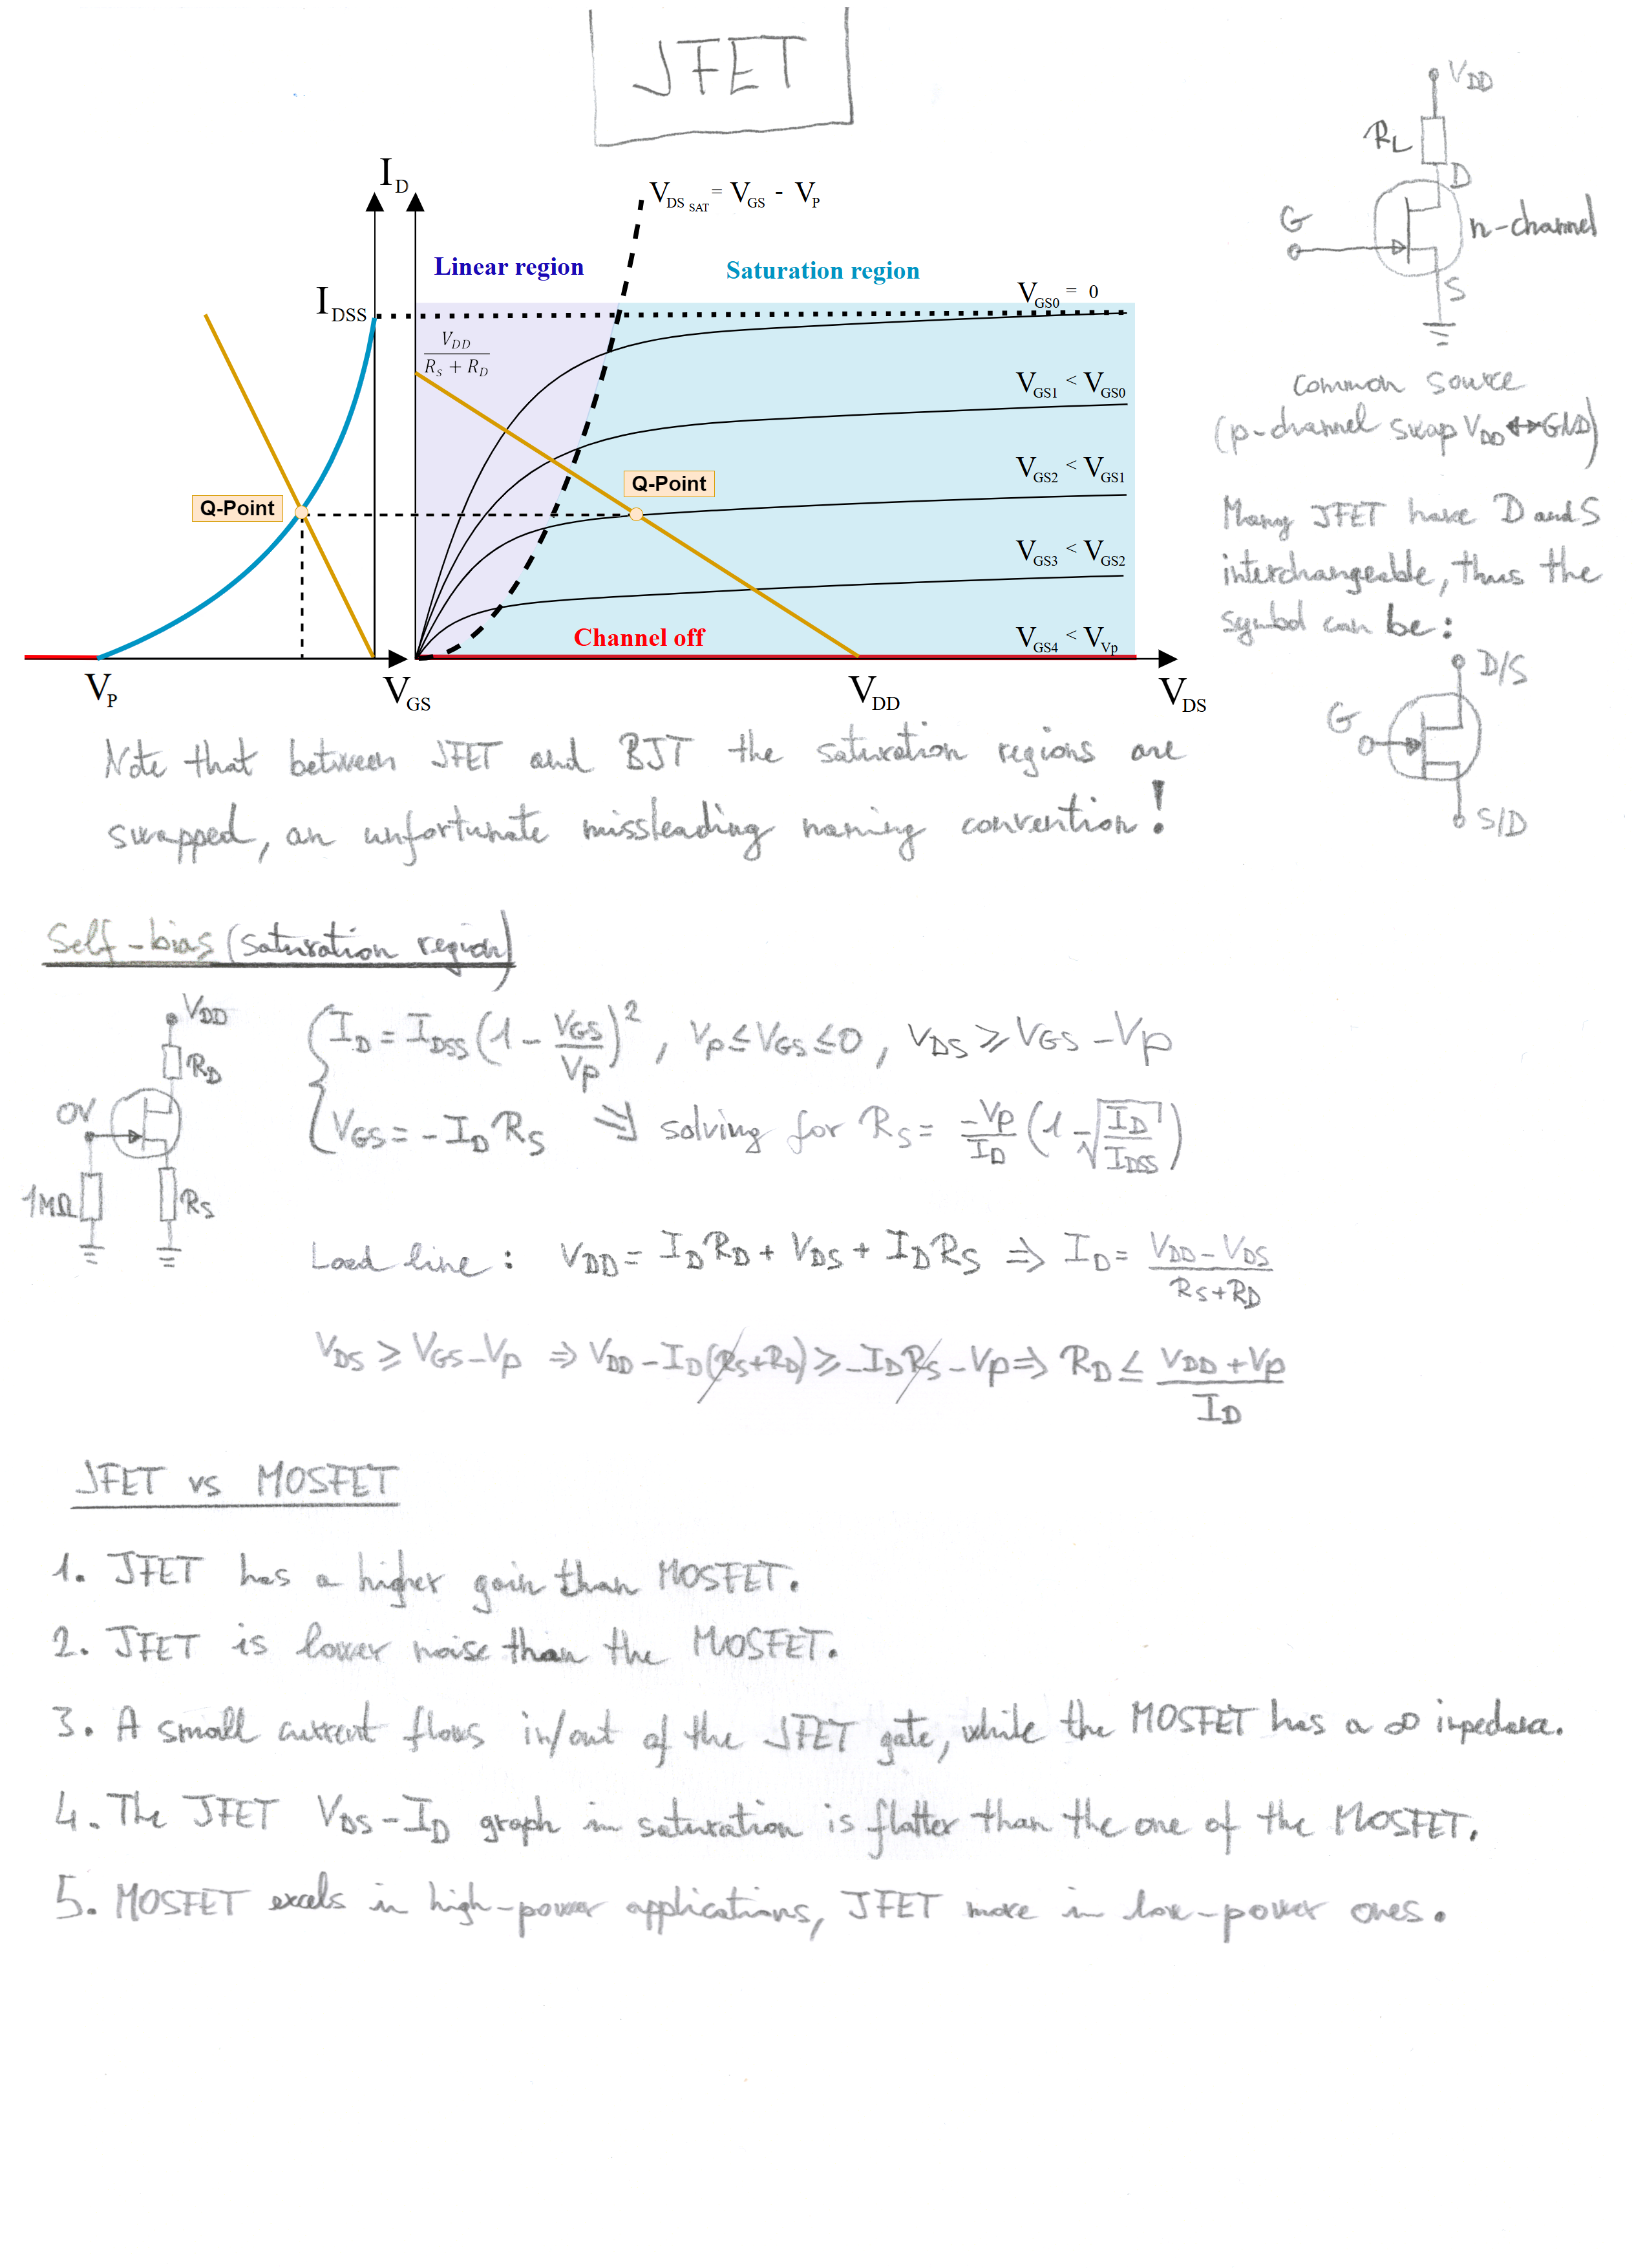 JFET
I_D
V_DS SAT = V_GS - V_P
Linear region
Saturation region
I_DSS
V_GS0 = 0
V_DD / (R_S + R_D)
V_GS1 < V_GS0
V_GS2 < V_GS1
Q-Point
Q-Point
V_GS3 < V_GS2
Channel off
V_GS4 < V_Vp
V_P
V_GS
V_DD
V_DS
V_DD
R_L
D
G
n-channel
S
common source
(p-channel swap V_DD ↔ GND)
Many JFET have D and S
interchangeable, thus the
symbol can be:
D/S
G
S/D
Note that between JFET and BJT the saturation regions are
swapped, an unfortunate missleading naming convention!
Self-bias (saturation region)
V_DD
R_D
0V
1MΩ
R_S
I_D = I_DSS (1 - V_GS/V_P)², V_P ≤ V_GS ≤ 0, V_DS ≥ V_GS - V_P
V_GS = -I_D R_S ⇒ solving for R_S = -V_P/I_D (1 - √(I_D/I_DSS))
Load line: V_DD = I_D R_D + V_DS + I_D R_S ⇒ I_D = (V_DD - V_DS)/(R_S + R_D)
V_DS ≥ V_GS - V_P ⇒ V_DD - I_D(R_S + R_D) ≥ -I_D R_S - V_P ⇒ R_D ≤ (V_DD + V_P)/I_D
JFET vs MOSFET
1. JFET has a higher gain than MOSFET.
2. JFET is lower noise than the MOSFET.
3. A small current flows in/out of the JFET gate, while the MOSFET has a ∞ impedance.
4. The JFET V_DS - I_D graph in saturation is flatter than the one of the MOSFET.
5. MOSFET excels in high-power applications, JFET more in low-power ones.